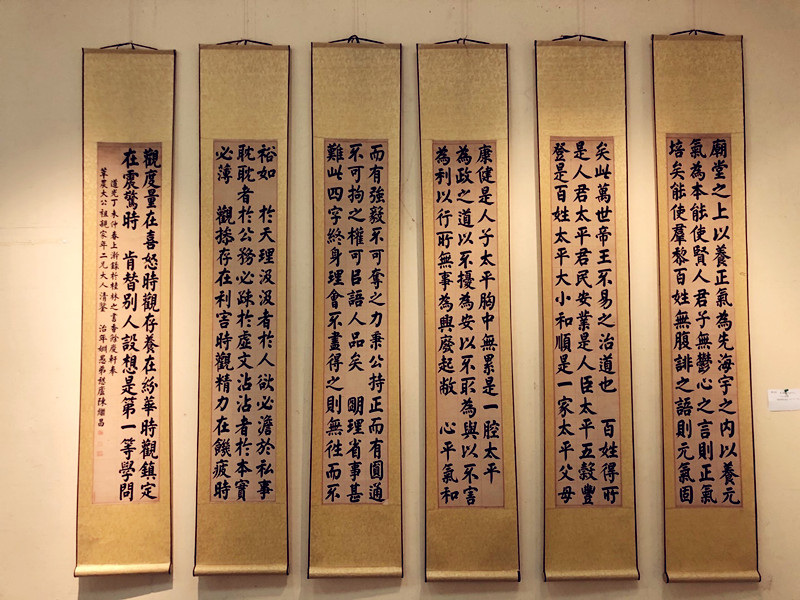 廟堂之上以養正氣為先海宇之内以養元
氣為本能使賢人君子無鬱心之言則正氣
培矣能使羣黎百姓無腹誹之語則元氣固
矣此萬世帝王不易之治道也　百姓得所
是人君太平君民安業是人臣太平五穀豐
登是百姓太平大小和順是一家太平父母
康健是人子太平胸中無累是一腔太平
為政之道以不擾為安以不取為與以不害
為利以行所無事為興廢起敝　心平氣和
而有強毅不可奪之力秉公持正而有圓通
不可拘之權可㠯語人品矣　明理省事甚
難此四字終身理會不盡得之則無往而不
裕如　於天理汲汲者於人欲必澹於私事
耽耽者於公務必疎於虛文沾沾者於本實
必薄　觀操存在利害時觀精力在饑疲時
觀度量在喜怒時觀存養在紛華時觀鎮定
在震驚時　肯替別人設想是第一等學問
道光丁未仲春上澣錄於桂林之書香餘慶軒奉
莘農大公祖親家年二兄大人清鑒　治年姻愚弟陳繼昌